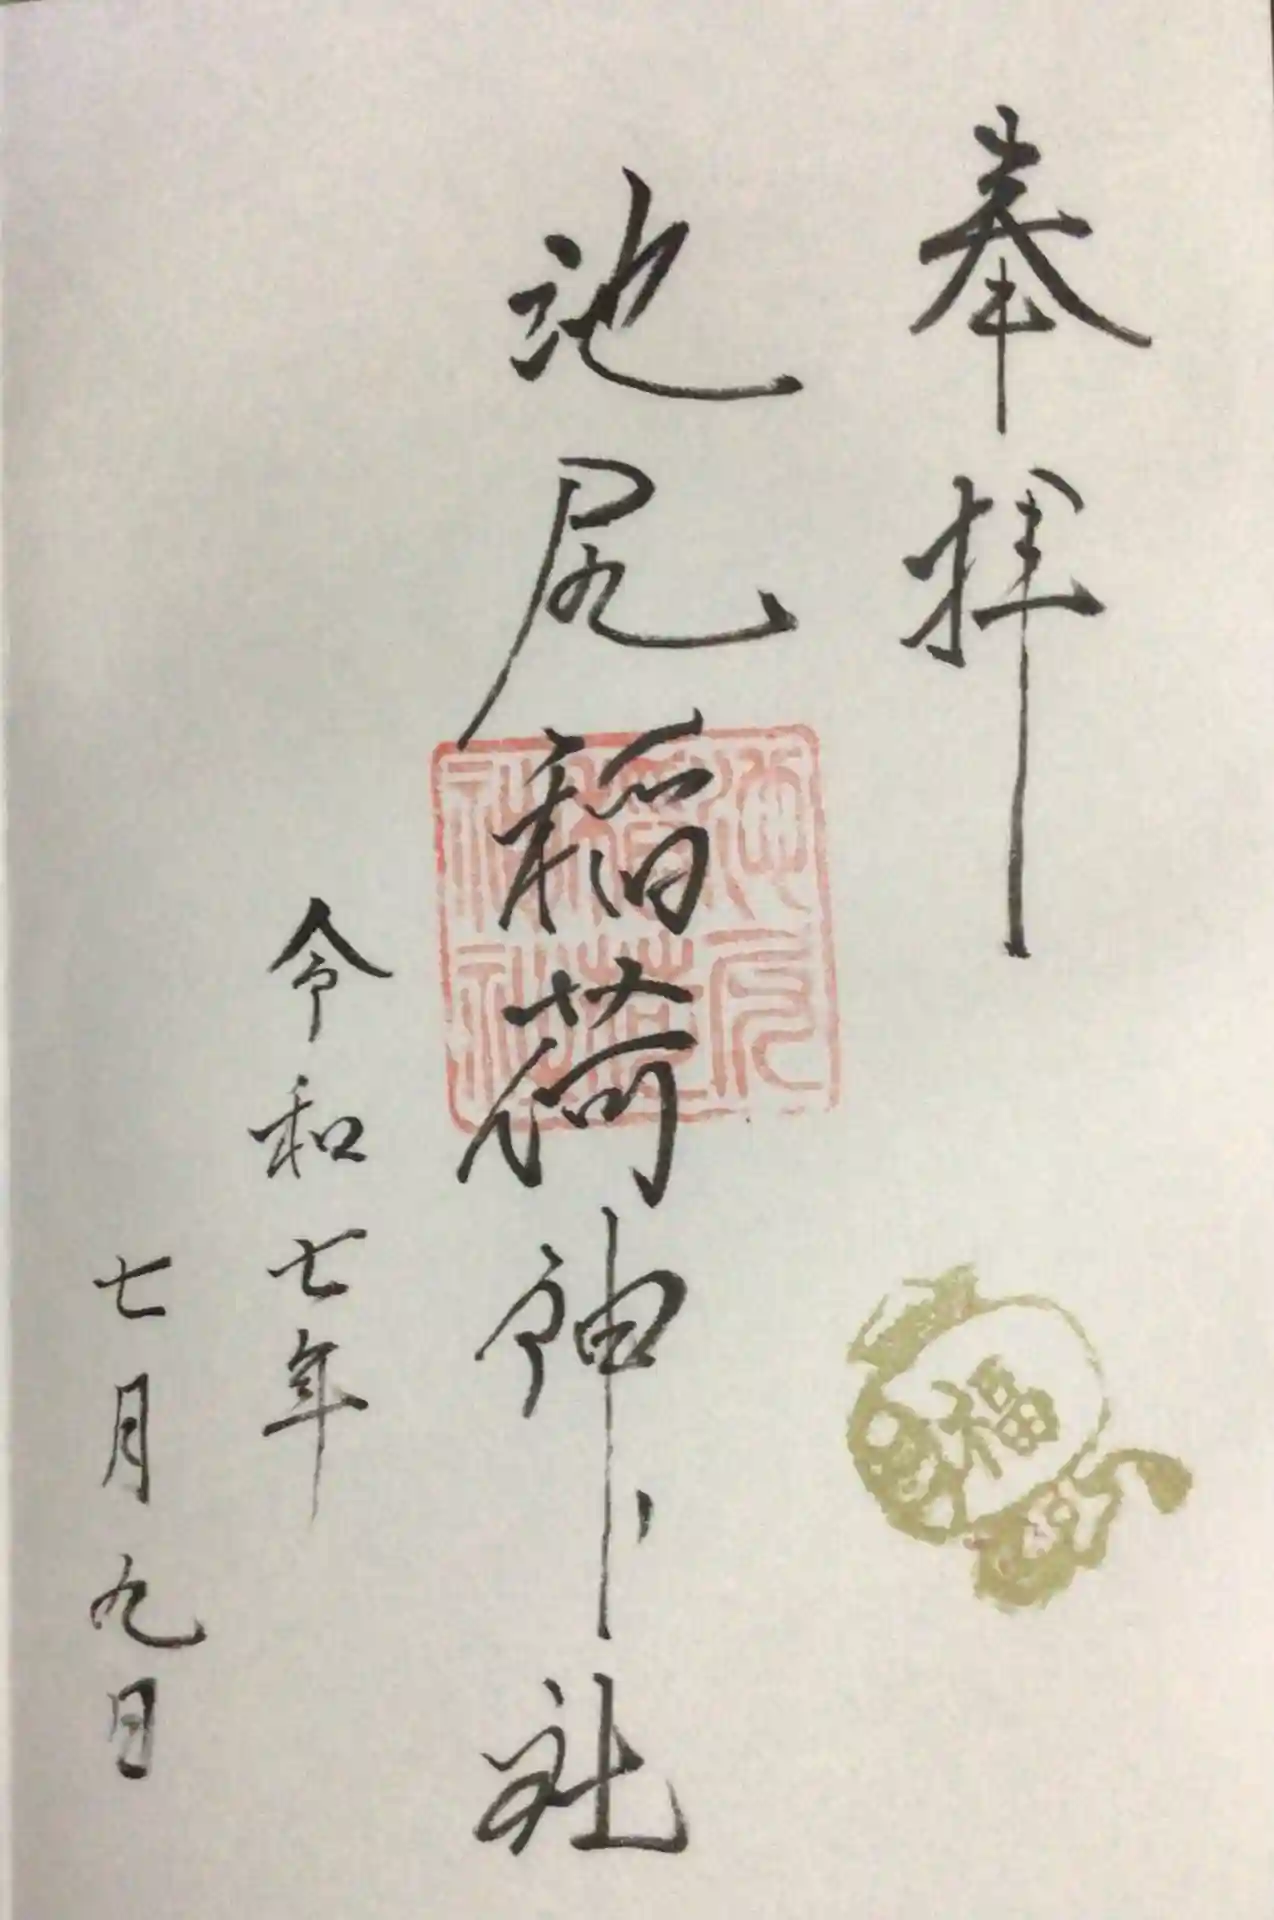 奉拝
池尻稲荷神社
池尻稲荷神社
福
令和七年
七月九日